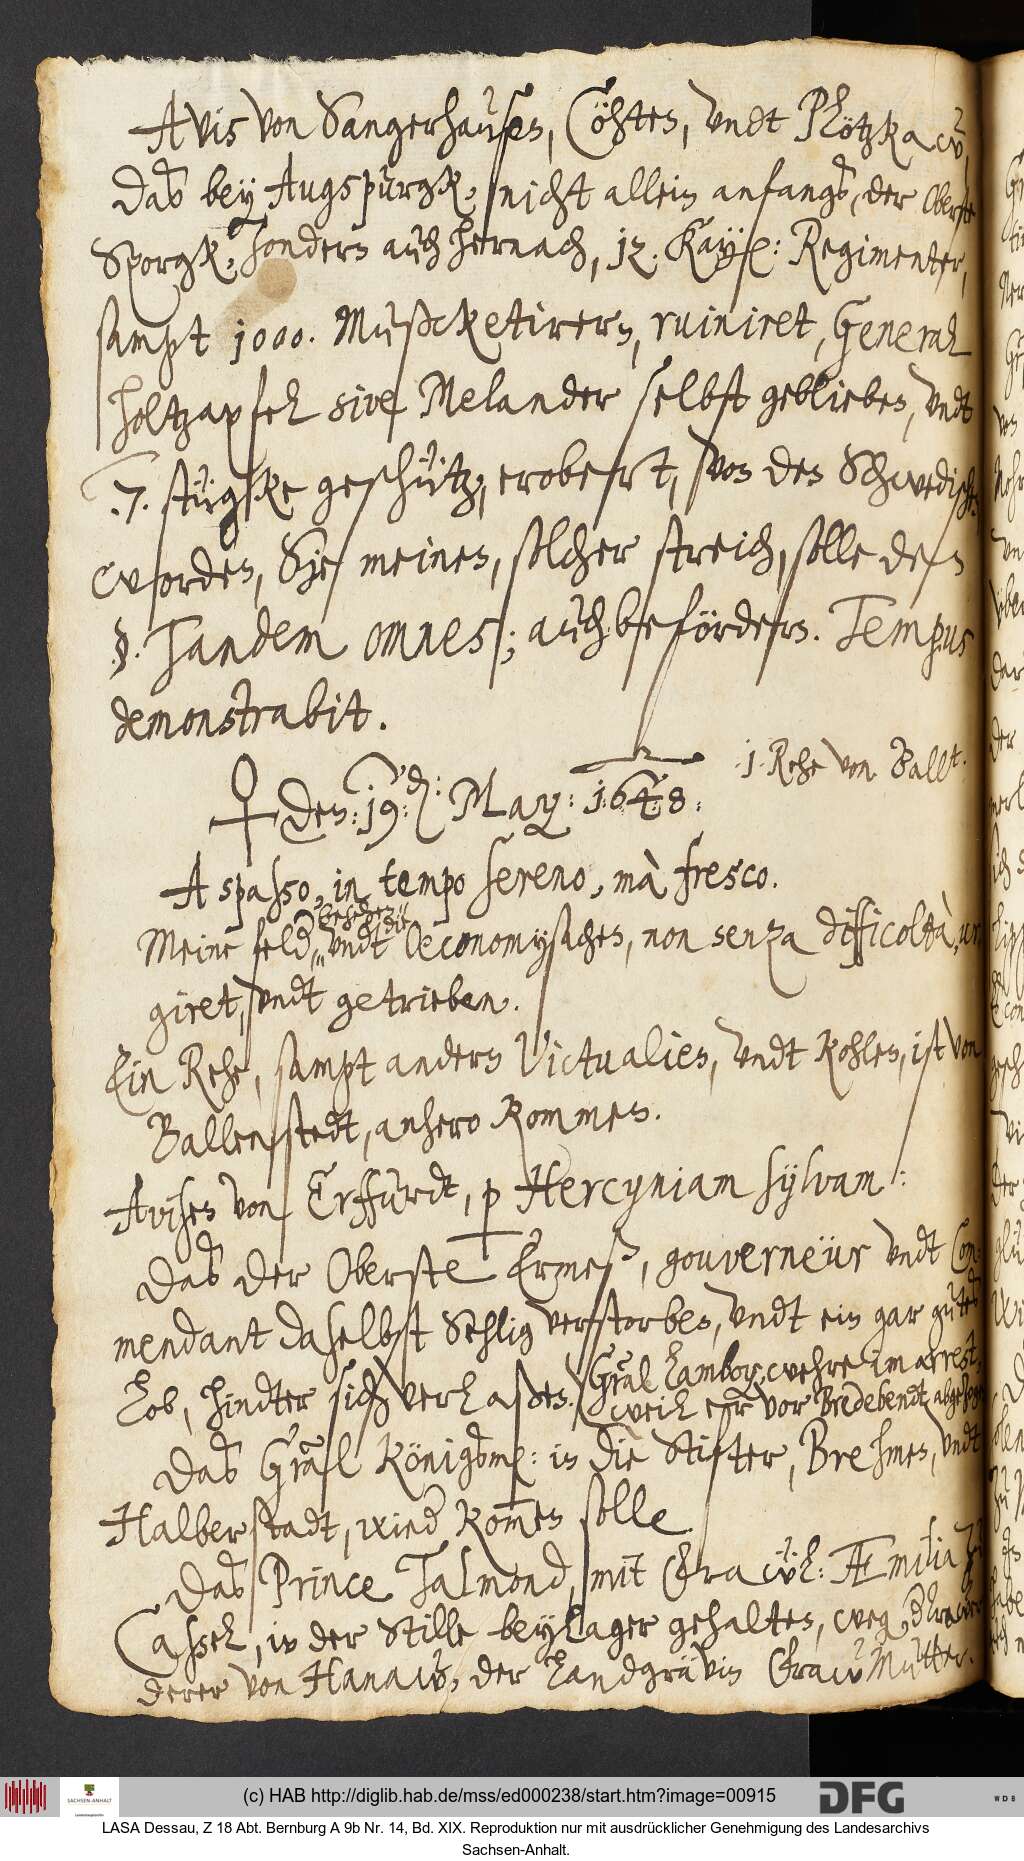 Avis von Sangerhausen, Cöhten, vndt Plötzkaw,
das bey Augspurgk, nicht allein anfangs, der Oberste
Sporgk, sondern auch hernach, 12. Kayß: Regimenter,
sampt 1000. Mußcketirern, ruiniret, General
Holtzapfel sive Melander selbst geblieben, vndt
7. stügke geschütz, erobert, von den Schwedischen,
worden, Sie meinen, solcher streich, solle den
§. Tandem omnes; auch befördern. Tempus
demonstrabit.
1. Rehe von Ballt.
den: 19. May: 1648.
A spasso, in tempo sereno, mà fresco.
geschezzü
Meine feld, vndt Oeconomysachen, non senza difficoltà, ur
giret, vndt getrieben.
Ein Rehe, sampt andern Victualien, vndt Kohlen, ist von
Ballenstedt, anhero kommen.
Avisen von Erffurdt, p Hercyniam sylvam:
Das der Oberste Ermeß, gouverneür vndt Com:
mendant daselbst Sehlig verstorben, vndt ein gar gutes
Lob, hindter sich verlaßen. Gräl Lamboy, wehre im arrest,
weil er vor Bredebendt, abgezogen
Das Gräl Königsm: in die Stifter, Brehmen, vndt
Halberstadt, wied kommen solle
Das Prince Talmond, mit Frawl: Æmilia zu
Cassel, in der Stille beylager gehalten, weg
derer von Hanaw, der Landgrävin Fraw Mutter.
(c) HAB http://diglib.hab.de/mss/ed000238/start.htm?image=00915
SACHSEN-ANHALT
DFG
WDB
LASA Dessau, Z 18 Abt. Bernburg A 9b Nr. 14, Bd. XIX. Reproduktion nur mit ausdrücklicher Genehmigung des Landesarchivs
Sachsen-Anhalt.